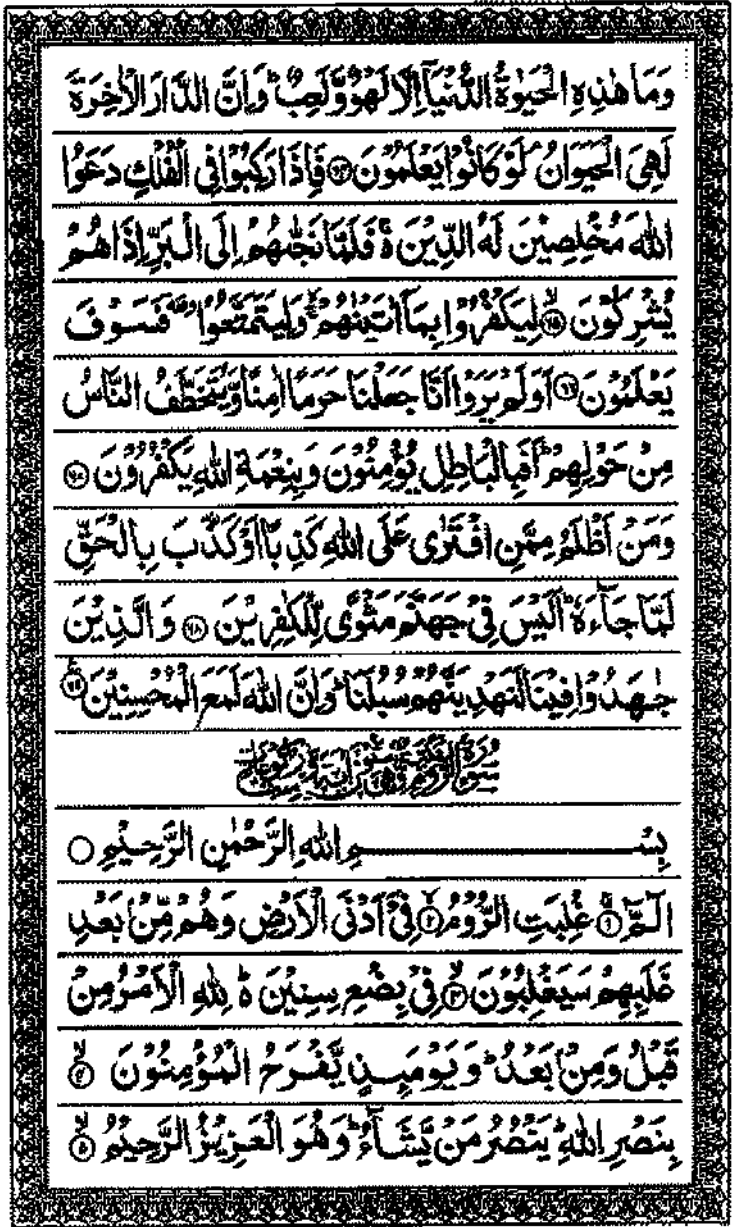 وَمَا هٰذِهِ الْحَيٰوةُ الدُّنْيَآ اِلَّا لَهْوٌ وَّلَعِبٌ ؕ وَاِنَّ الدَّارَ الْاٰخِرَةَ
لَهِيَ الْحَيَوَانُ ۘ لَوْ كَانُوْا يَعْلَمُوْنَ ﴿۶۴﴾ فَاِذَا رَكِبُوْا فِي الْفُلْكِ دَعَوُا
اللّٰهَ مُخْلِصِيْنَ لَهُ الدِّيْنَ ۚ فَلَمَّا نَجّٰىهُمْ اِلَى الْبَرِّ اِذَا هُمْ
يُشْرِكُوْنَ ﴿۶۵﴾ لِيَكْفُرُوْا بِمَآ اٰتَيْنٰهُمْ ۚ وَلِيَتَمَتَّعُوْا ۥ فَسَوْفَ
يَعْلَمُوْنَ ﴿۶۶﴾ اَوَلَمْ يَرَوْا اَنَّا جَعَلْنَا حَرَمًا اٰمِنًا وَّيُتَخَطَّفُ النَّاسُ
مِنْ حَوْلِهِمْ ؕ اَفَبِالْبَاطِلِ يُؤْمِنُوْنَ وَبِنِعْمَةِ اللّٰهِ يَكْفُرُوْنَ
وَمَنْ اَظْلَمُ مِمَّنِ افْتَرٰى عَلَى اللّٰهِ كَذِبًا اَوْ كَذَّبَ بِالْحَقِّ
لَمَّا جَآءَهٗ ؕ اَلَيْسَ فِيْ جَهَنَّمَ مَثْوًى لِّلْكٰفِرِيْنَ ﴿۶۸﴾ وَالَّذِيْنَ
جٰهَدُوْا فِيْنَا لَنَهْدِيَنَّهُمْ سُبُلَنَا ؕ وَاِنَّ اللّٰهَ لَمَعَ الْمُحْسِنِيْنَ ﴿۶۹﴾
سُوْرَةُ الرُّوْمِ
بِسْمِ اللّٰهِ الرَّحْمٰنِ الرَّحِيْمِ
الٓمّٓ ﴿۱﴾ غُلِبَتِ الرُّوْمُ ﴿۲﴾ فِيْٓ اَدْنَى الْاَرْضِ وَهُمْ مِّنْۢ بَعْدِ
غَلَبِهِمْ سَيَغْلِبُوْنَ ﴿۳﴾ فِيْ بِضْعِ سِنِيْنَ ؕ لِلّٰهِ الْاَمْرُ مِنْ
قَبْلُ وَمِنْۢ بَعْدُ ؕ وَيَوْمَئِذٍ يَّفْرَحُ الْمُؤْمِنُوْنَ ﴿۴﴾
بِنَصْرِ اللّٰهِ ؕ يَنْصُرُ مَنْ يَّشَآءُ ؕ وَهُوَ الْعَزِيْزُ الرَّحِيْمُ ﴿۵﴾